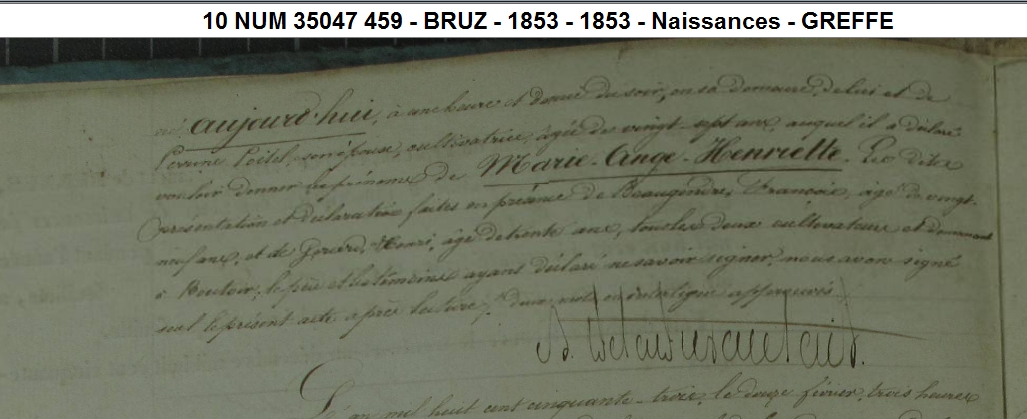 10 NUM 35047 459 - BRUZ - 1853 - 1853 - Naissances - GREFFE
né aujourd'hui, à une heure et demie du soir, en sa demeure, de lui et de
Perrine Poitel, son épouse, cultivatrice, âgée de vingt-sept ans, auquel il a déclaré
vouloir donner les prénoms de Marie-Ange-Henriette. Les dites
présentation et déclaration faites en présence de Beaugendre, François, âgé de vingt-
neuf ans, et de Henri, âgé de trente ans, tous les deux cultivateurs et demeurant
à le père et les témoins ayant déclaré ne savoir signer, nous avons signé
seul le présent acte après lecture. deux mots en interligne approuvés.
L'an mil huit cent cinquante-trois, le douze février, trois heures